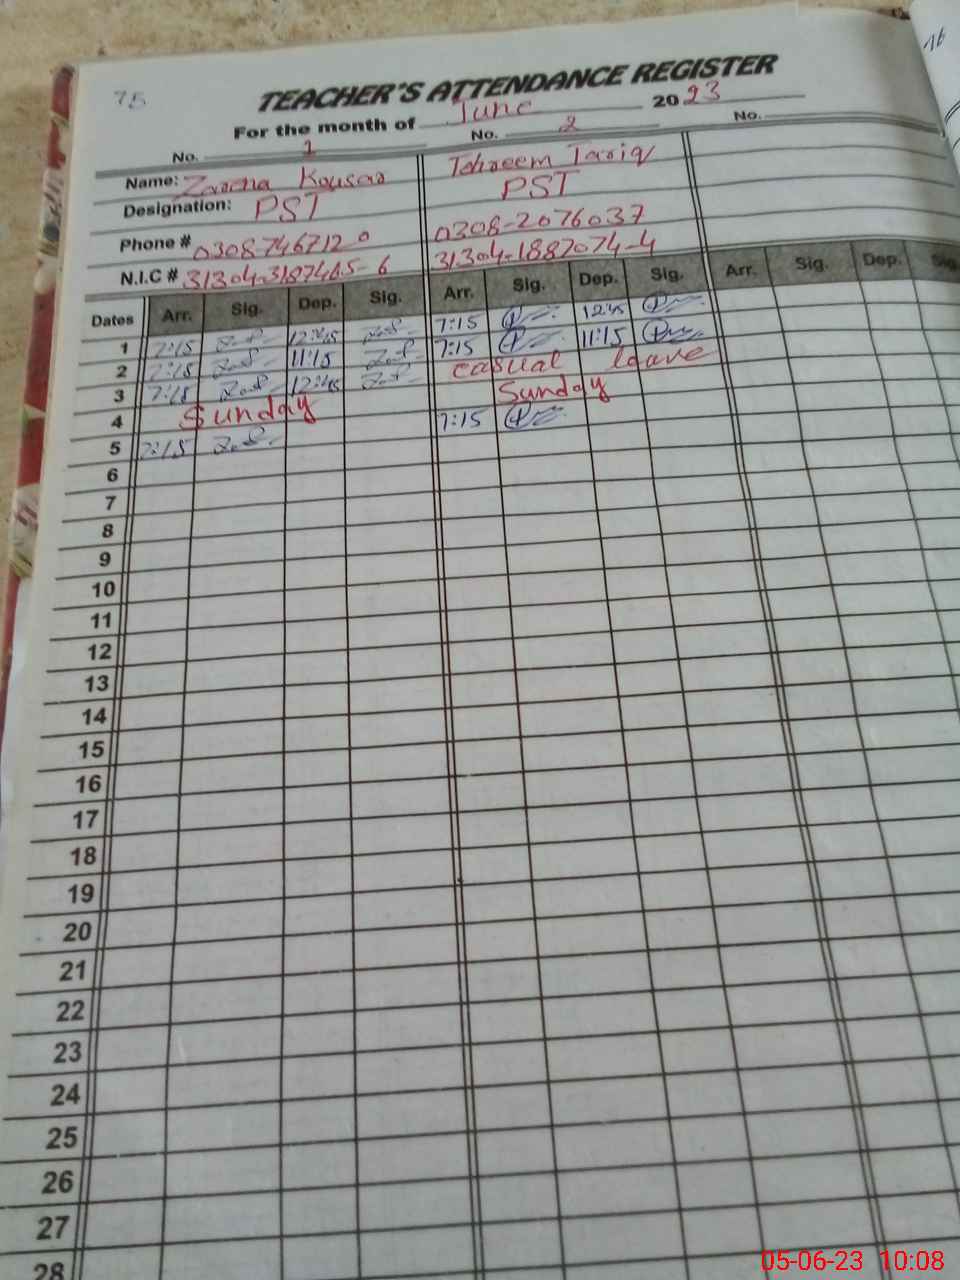 75
TEACHER'S ATTENDANCE REGISTER
For the month of June 2023
No. 1 No. 2 No.
Name: Kousar Tehreem Tariq
Designation: PST PST
Phone # 0308-7467120 0308-2076037
N.I.C # 31304-1887074-4
Dates Arr. Sig. Dep. Sig. Arr. Sig. Dep. Sig. Arr. Sig. Dep. Sig.
1 7:15 12:45 7:15 12:45
2 7:15 11:15 7:15 11:15
3 7:15 12:45 casual leave
4 Sunday Sunday
5 7:15 7:15
6
7
8
9
10
11
12
13
14
15
16
17
18
19
20
21
22
23
24
25
26
27
28
05-06-23 10:08